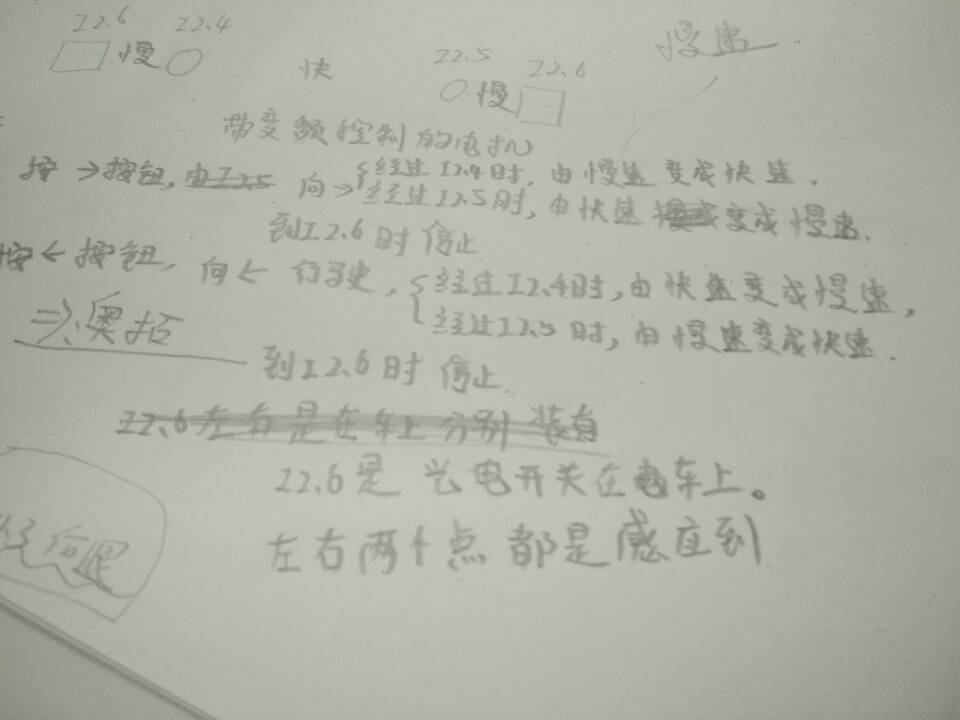 I2.6 I2.4
慢
快
I2.5 I2.6
慢
慢速
带变频控制的电机
按→按钮,由I2.5 向→ 经过I2.4时,由慢速变成快速.
经过I2.5时,由快速 变成慢速.
到I2.6时停止
按←按钮,向←行驶,经过I2.4时,由快速变成慢速,
经过I2.5时,由慢速变成快速.
到I2.6时停止.
I2.6左右是在车上分别装有
I2.6是光电开关在电车上。
左右两个点都是感应到